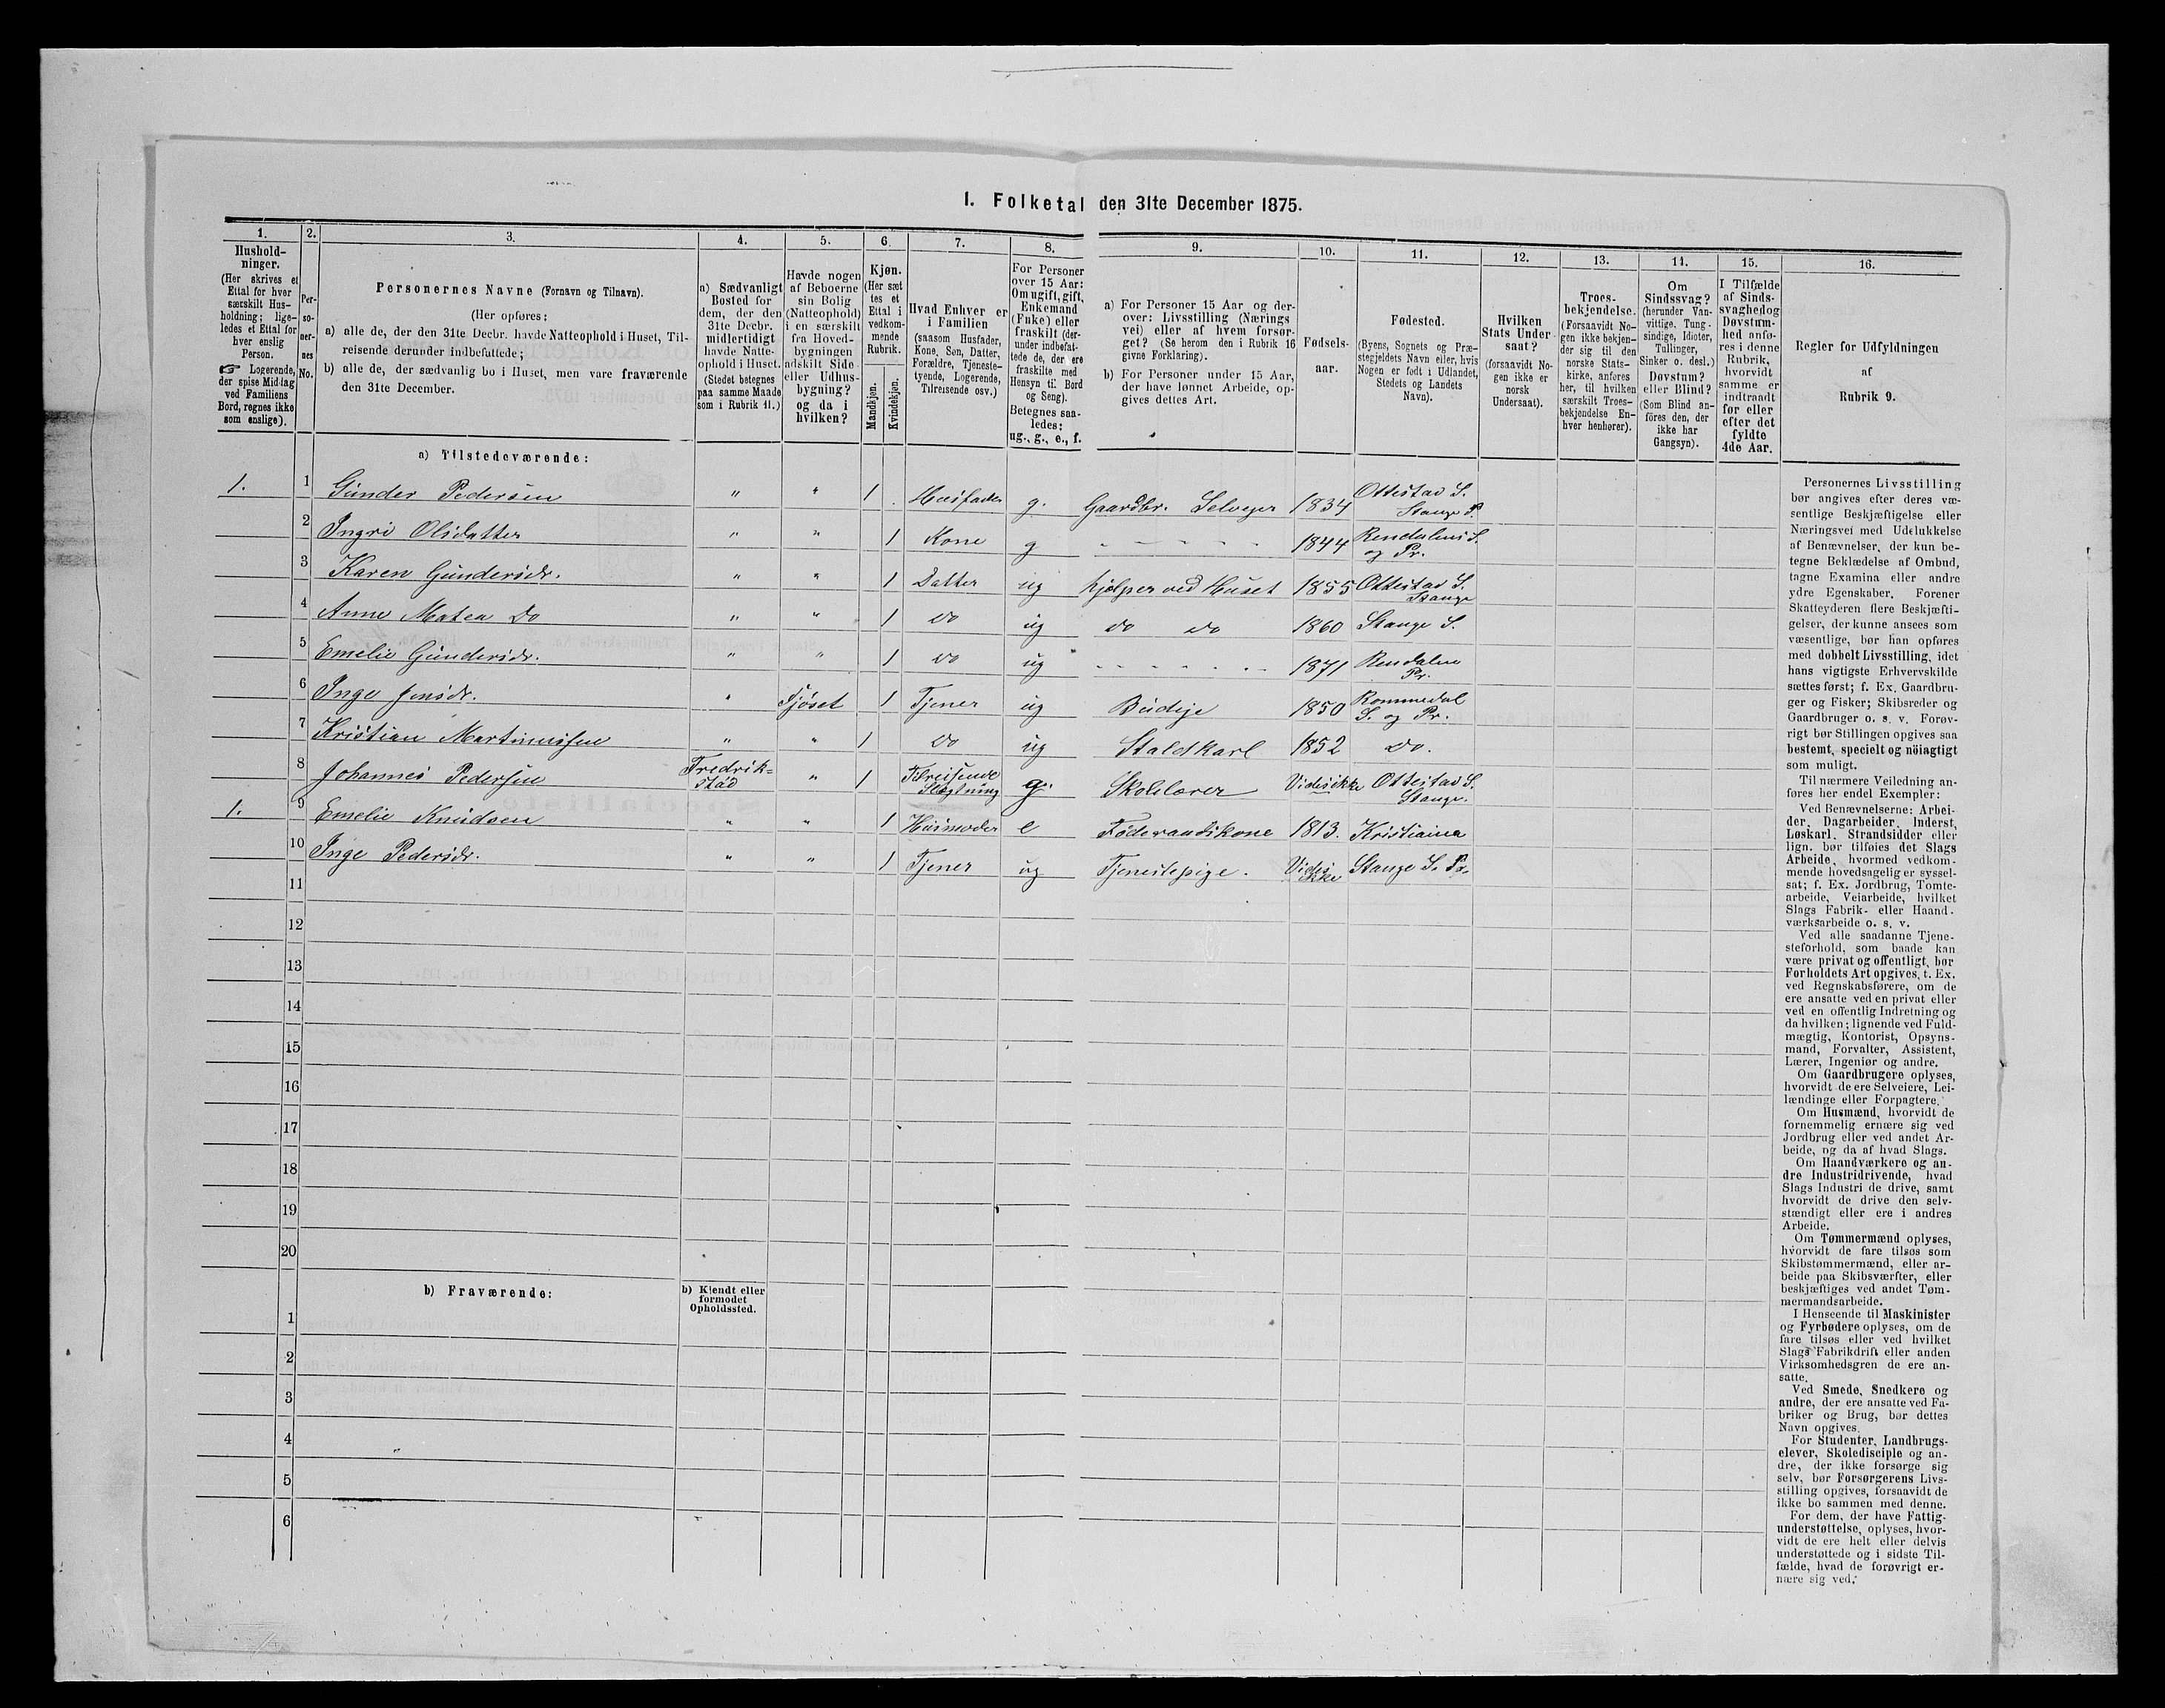 1. Folketal den 31te December 1875.
1. 2. 3. 4. 5. 6. 7. 8. 9. 10. 11. 12. 13. 14. 15. 16.
Hushold-
ninger.
(Her skrives et
Ettal for hver
særskilt Hus-
holdning; lige-
ledes et Ettal for
hver enslig
Person.
☞ Logerende,
der spise Middag
ved Familiens
Bord, regnes ikke
som enslige).
Per-
so-
ner-
nes
No.
Personernes Navne (Fornavn og Tilnavn).
(Her opføres:
a) alle de, der den 31te Decbr. havde Natteophold i Huset, Til-
reisende derunder indbefattede;
b) alle de, der sædvanlig bo i Huset, men vare fraværende
den 31te December.
a) Sædvanligt
Bosted for
dem, der den
31te Decbr.
midlertidigt
havde Natte-
ophold i Huset.
(Stedet betegnes
paa samme Maade
som i Rubrik 11.)
Havde nogen
af Beboerne
sin Bolig
(Natteophold)
i en særskilt
fra Hoved-
bygningen
adskilt Side-
eller Udhus-
bygning?
og da i
hvilken?
Kjøn.
(Her sæt
tes et
Ettal i
vedkom-
mende
Rubrik.
Mandkjøn.
Kvindekjøn.
Hvad Enhver er
i Familien
(saasom Husfader,
Kone, Søn, Datter,
Forældre, Tjeneste-
tyende, Logerende,
Tilreisende osv.)
For Personer
over 15 Aar:
Om ugift, gift,
Enkemand
(Enke) eller
fraskilt (der-
under indbefat-
tede de, der ere
fraskilte med
Hensyn til Bord
og Seng).
Betegnes saa-
ledes:
ug., g., e., f.
a) For Personer 15 Aar og der-
over: Livsstilling (Nærings
vei) eller af hvem forsør-
get? (Se herom den i Rubrik 16
givne Forklaring).
b) For Personer under 15 Aar,
der have lønnet Arbeide, op-
gives dettes Art.
Fødsels-
aar.
Fødested.
(Byens, Sognets og Præ-
stegjeldets Navn eller, hvis
Nogen er født i Udlandet,
Stedets og Landets
Navn).
Hvilken
Stats Under
saat?
(forsaavidt No-
gen ikke er
norsk
Undersaat).
Troes-
bekjendelse.
(Forsaavidt No-
gen ikke bekjen-
der sig til den
norske Stats-
kirke, anføres
her, til hvilken
særskilt Troes-
bekjendelse En-
hver henhører).
Om
Sindssvag?
(herunder Van-
vittige, Tung-
sindige, Idioter,
Tullinger,
Sinker o. desl.)
Døvstum?
eller Blind?
(Som Blind an-
föres den, der
ikke har
Gangsyn).
I Tilfælde
af Sinds-
svaghed og
Døvstum-
hed anfø-
res i denne
Rubrik,
hvorvidt
samme er
indtraadt
før eller
efter det
fyldte
4de Aar.
Regler for Udfyldningen
af
Rubrik 9.
a) Tilstedeværende:
1. 1 Gunder Pedersen " " 1 Husfader g. Gaardbr. Selveger 1834 Ottestad S. Stange P.
2 Ingri Olsdatter " " 1 Kone g - - - - - 1844 Rendalens S. og Pr.
3 Karen Gundersdr. " " 1 Datter ug hjelper ved Huset 1855 Ottestad S. Stange
4 Anne Matea Do " " 1 do ug do do 1860 Stange S.
5 Emelie Gundersdr. " " 1 do ug - - - - - 1871 Rendalen Pr.
6 Inge Jensdr. " Fjöset 1 Tjener ug Budeje 1850 Rommedal S. og Pr.
7 Kristian Martinussen " " 1 do ug Staldkarl 1852 do.
8 Johannes Pedersen Fredrik=stad " 1 Tilreisende Slægtning g. Skolelærer Vides ikke Ottestad S. Stange.
1. 9 Emelie Knudsen " " 1 Husmoder e Föderaadskone 1813. Kristiania
10 Inge Pedersdr. " " 1 Tjener ug Tjenestepige. Vides ikke Stange S. Pr.
11
12
13
14
15
16
17
18
19
20
b) Fraværende:
b) Kjendt eller
formodet
Opholdssted.
1
2
3
4
5
6
Personernes Livsstilling
bør angives efter deres væ-
sentlige Beskjæftigelse eller
Næringsvei med Udelukkelse
af Benævnelser, der kun be-
tegne Beklædelse af Ombud,
tagne Examina eller andre
ydre Egenskaber. Forener
Skatteyderen flere Beskjæfti-
gelser, der kunne ansees som
væsentlige, bør han opføres
med dobbelt Livsstilling, idet
hans vigtigste Erhvervskilde
sættes først; f. Ex. Gaardbru-
ger og Fisker; Skibsreder og
Gaardbruger o. s. v. Forøv-
rigt bør Stillingen opgives saa
bestemt, specielt og nöiagtigt
som muligt.
Til nærmere Veiledning an-
føres her endel Exempler:
Ved Benævnelserne: Arbei-
der, Dagarbeider, Inderst,
Løskarl, Strandsidder eller
lign. bør tilføies det Slags
Arbeide, hvormed vedkom-
mende hovedsagelig er syssel-
sat; f. Ex. Jordbrug, Tomte-
arbeide, Veiarbeide, hvilket
Slags Fabrik- eller Haand-
værksarbeide o. s. v.
Ved alle saadanne Tjene-
steforhold, som baade kan
være privat og offentligt, bør
Forholdets Art opgives, t. Ex.
ved Regnskabsførere, om de
ere ansatte ved en privat eller
ved en offentlig Indretning og
da hvilken; lignende ved Fuld-
mægtig, Kontorist, Opsyns-
mand, Forvalter, Assistent,
Lærer, Ingeniør og andre.
Om Gaardbrugere oplyses,
hvorvidt de ere Selveiere, Lei-
lændinge eller Forpagtere.
Om Husmænd, hvorvidt de
fornemmelig ernære sig ved
Jordbrug eller ved andet Ar-
beide, og da af hvad Slags.
Om Haandværkere og an-
dre Industridrivende, hvad
Slags Industri de drive, samt
hvorvidt de drive den selv-
stændigt eller ere i andres
Arbeide.
Om Tømmermænd oplyses,
hvorvidt de fare tilsøs som
Skibstømmermænd, eller ar-
beide paa Skibsværfter, eller
beskjæftiges ved andet Tøm-
mermandsarbeide.
I Henseende til Maskinister
og Fyrbødere oplyses, om de
fare tilsøs eller ved hvilket
Slags Fabrikdrift eller anden
Virksomhedsgren de ere an-
satte.
Ved Smede, Snedkere og
andre, der ere ansatte ved Fa-
briker og Brug, bør dettes
Navn opgives.
For Studenter, Landbrugs-
elever, Skoledisciple og an-
dre, der ikke forsørge sig
selv, bør Forsørgerens Livs-
stilling opgives, forsaavidt de
ikke bo sammen med denne.
For dem, der have Fattig-
understøttelse, oplyses, hvor-
vidt de ere helt eller delvis
understøttede og i sidste Til-
fælde, hvad de forøvrigt er-
nære sig ved.